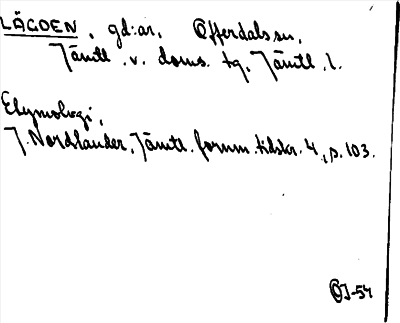 LÄGDEN, gd:ar, Offerdals sn,
Jämtl. v. doms. tg, Jämtl. l.
Etymologi,
J. Nordlander, Jämtl. fornm. tidskr. 4, s. 103.
OJ-54